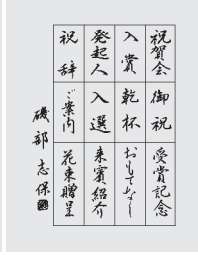 祝賀会
御祝
受賞記念
入賞
乾杯
おもてなし
発起人
入選
来賓紹介
祝辞
ご案内
花束贈呈
磯部志保